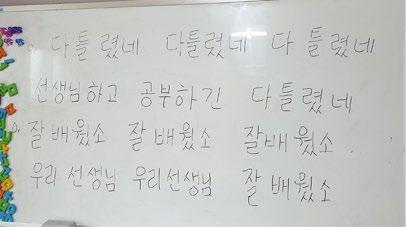 다틀렸네 다틀렸네 다틀렸네
선생님하고 공부하긴 다틀렸네
잘배웠소 잘배웠소 잘배웠소.
우리선생님 우리선생님 잘배웠소